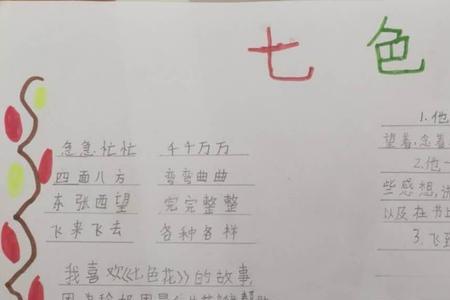 七色
急急忙忙 千千万万
四面八方 弯弯曲曲
东张西望 完完整整
飞来飞去 各种各样
我喜欢《七色花》的故事,
1.他
望着,念着
2.他一
些感想,
以及在书上
3.飞到